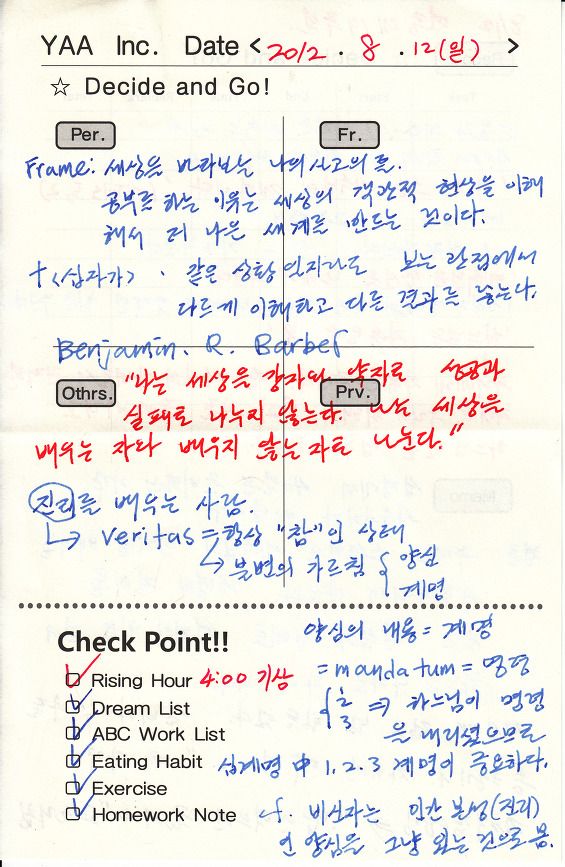 YAA Inc. Date < 2012 . 8 . 12(일) >
☆ Decide and Go!
Per. Fr.
Frame: 세상을 바라보는 나의 사고의 틀.
공부를 하는 이유는 세상의 객관적 현상을 이해
해서 더 나은 세계를 만드는 것이다.
† <십자가> · 같은 상황일지라도 보는 관점에서
다르게 이해하고 다른 결과를 낳는다.
Benjamin. R. Barber
Othrs. Prv.
"나는 세상을 강자와 약자로 성공과
실패로 나누지 않는다. 나는 세상을
배우는 자와 배우지 않는 자로 나눈다."
진리를 배우는 사람.
↳ veritas = 항상 "참"인 상태
↳ 불변의 가르침 { 양심
계명
Check Point!!
양심의 내용 = 계명
= mandatum = 명령
Rising Hour 4:00 기상
Dream List
{ 1 2 3 ⇒ 하느님이 명령
ABC Work List
을 내리셨으므로
Eating Habit
십계명 中 1, 2, 3 계명이 중요하다.
Exercise
Homework Note
cf. 비신자는 인간 본성(진리)
인 양심을 그냥 있는 것으로 봄.